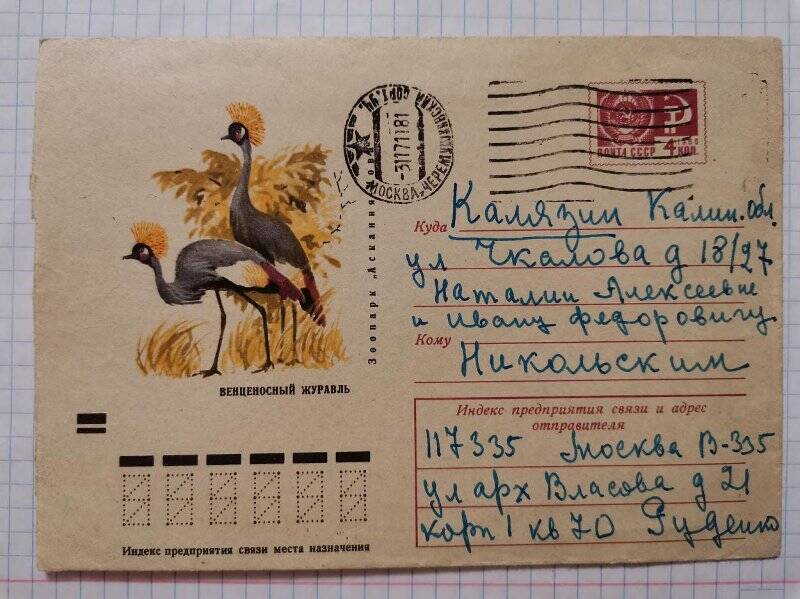 МОСКВА, ЧЕРЕМУШКИНСКАЯ СОРТ. УЧ.
1966
ПОЧТА СССР 4 КОП
Куда Калязин Калин. обл.
ул Чкалова д 18/27
Наталии Алексеевне
и Ивану Федоровичу
Кому
Никольским
Зоопарк „Аскания
ВЕНЦЕНОСНЫЙ ЖУРАВЛЬ
Индекс предприятия связи и адрес
отправителя
117335 Москва В-335
ул арх Власова д 21
корп 1 кв 70 Руденко
Индекс предприятия связи места назначения